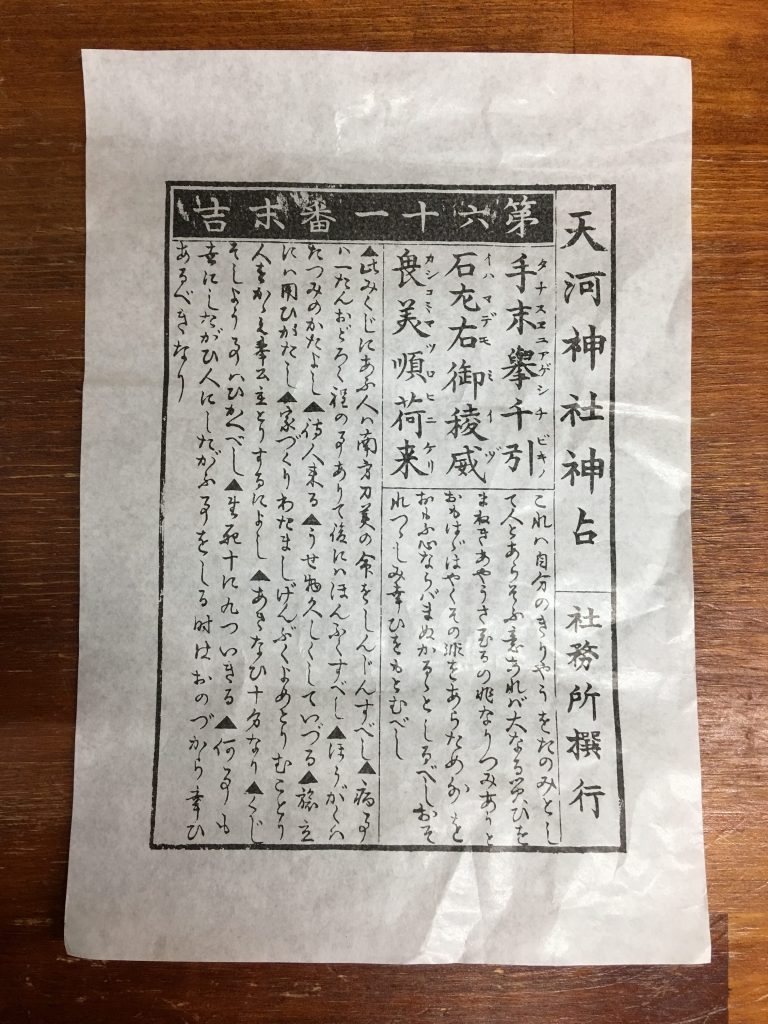 天河神社神占
社務所撰行
第六十一番末吉
手末擧千引
タナスヱニアゲシチビキノ
石尣右御稜威
イハマデモミイヅ
畏美順荷来
カシコミマツロヒニケリ
これハ自分のきりやうをたのみとし
て人とあらそふ意あれバ大なるわざひを
まねきあやうき
の兆なりつみありと
おもはゞはやくその非をあらため
を
おもふ心ならバまぬかるゝとしるべしおそ
れつゝしみ幸ひをもとむべし
▲此みくじにあふ人ハ南方刀美の命をしんじんすべし▲病事
ハ一たんおどろく程の事ありて後にハほんふくすべし▲ほうがくハ
たつみのかたよし▲待人来る▲うせ物久しくしていづる▲旅立
にハ用ひがたし▲家づくりわたましげんぶくよめとりむことり
人をかゝえ奉公立とりするによし▲あきなひ十分なり▲くじ
そしよう事ハひかへべし▲生死十に九ついきる▲何事も
にしたがひ人にしたがふ事をしる時はおのづから幸ひ
あるべきなり